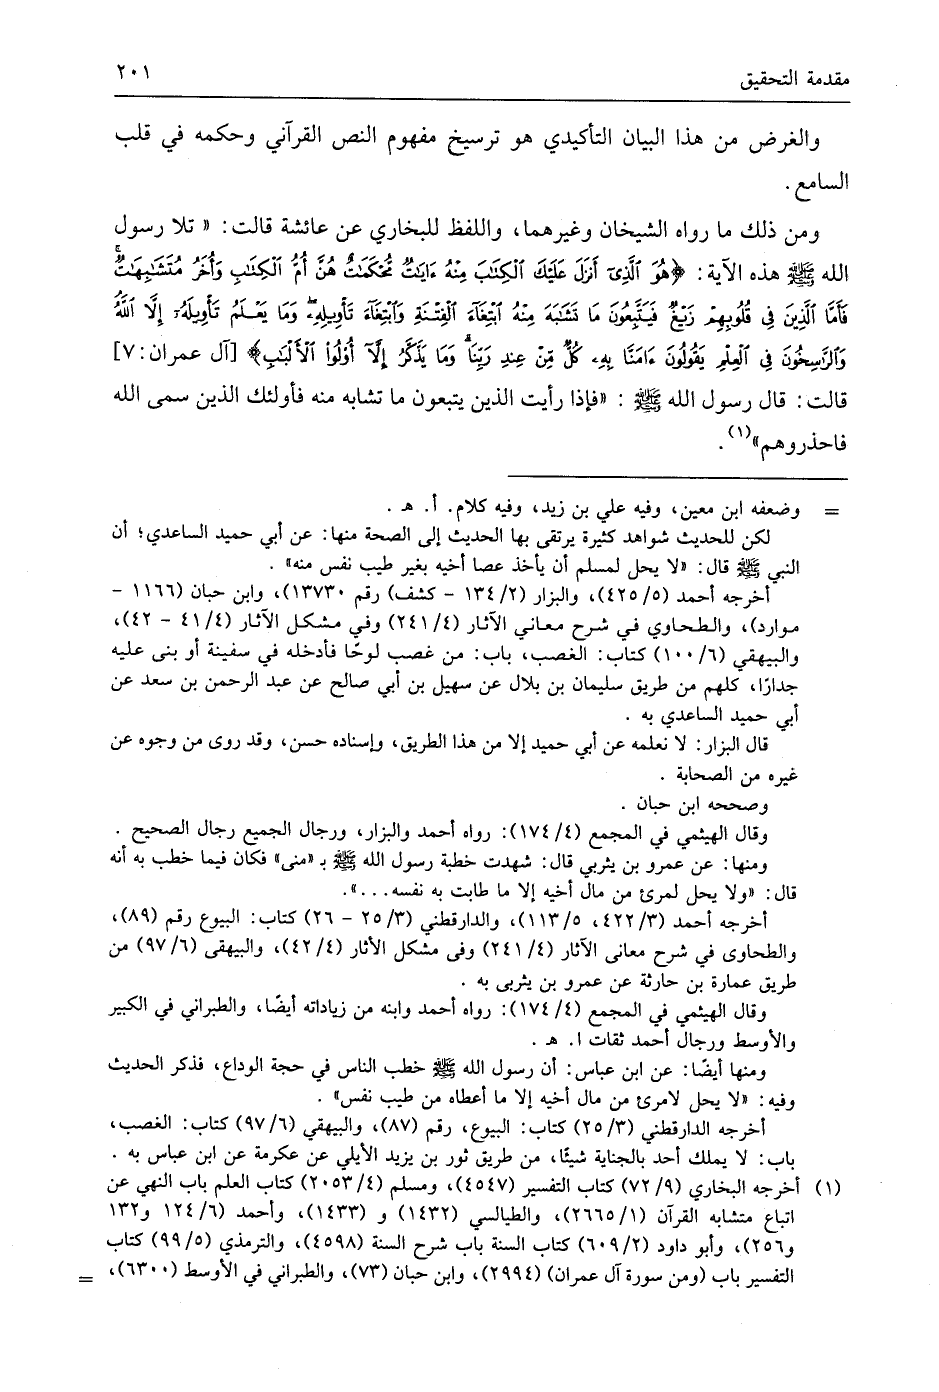 مقدمة التحقيق ٢٠١
والغرض من هذا البيان التأكيدي هو ترسيخ مفهوم النص القرآني وحكمه في قلب
السامع.
ومن ذلك ما رواه الشيخان وغيرهما، واللفظ للبخاري عن عائشة قالت: «تلا رسول
الله ﷺ هذه الآية: ﴿هُوَ ٱلَّذِىٓ أَنزَلَ عَلَيْكَ ٱلْكِتَٰبَ مِنْهُ ءَايَٰتٌ مُّحْكَمَٰتٌ هُنَّ أُمُّ ٱلْكِتَٰبِ وَأُخَرُ مُتَشَٰبِهَٰتٌ ۖ
فَأَمَّا ٱلَّذِينَ فِى قُلُوبِهِمْ زَيْغٌ فَيَتَّبِعُونَ مَا تَشَٰبَهَ مِنْهُ ٱبْتِغَآءَ ٱلْفِتْنَةِ وَٱبْتِغَآءَ تَأْوِيلِهِۦ ۗ وَمَا يَعْلَمُ تَأْوِيلَهُۥٓ إِلَّا ٱللَّهُ
وَٱلرَّٰسِخُونَ فِى ٱلْعِلْمِ يَقُولُونَ ءَامَنَّا بِهِۦ كُلٌّ مِّنْ عِندِ رَبِّنَا ۗ وَمَا يَذَّكَّرُ إِلَّآ أُو۟لُوا۟ ٱلْأَلْبَٰبِ﴾ [آل عمران:٧]
قالت: قال رسول الله ﷺ : «فإذا رأيت الذين يتبعون ما تشابه منه فأولئك الذين سمى الله
فاحذروهم»(١).
= وضعفه ابن معين، وفيه علي بن زيد، وفيه كلام. أ. هـ .
لكن للحديث شواهد كثيرة يرتقى بها الحديث إلى الصحة منها: عن أبي حميد الساعدي؛ أن
النبي ﷺ قال: «لا يحل لمسلم أن يأخذ عصا أخيه بغير طيب نفس منه» .
أخرجه أحمد (٤٢٥/٥)، والبزار (١٣٤/٢ - كشف) رقم ١٣٧٣٠)، وابن حبان (١١٦٦ -
موارد)، والطحاوي في شرح معاني الآثار (٢٤١/٤) وفي مشكل الآثار (٤١/٤ - ٤٢)،
والبيهقي (١٠٠/٦) كتاب: الغصب، باب: من غصب لوحًا فأدخله في سفينة أو بنى عليه
جدارًا، كلهم من طريق سليمان بن بلال عن سهيل بن أبي صالح عن عبد الرحمن بن سعد عن
أبي حميد الساعدي به .
قال البزار: لا نعلمه عن أبي حميد إلا من هذا الطريق، وإسناده حسن، وقد روى من وجوه عن
غيره من الصحابة .
وصححه ابن حبان .
وقال الهيثمي في المجمع (١٧٤/٤): رواه أحمد والبزار، ورجال الجميع رجال الصحيح .
ومنها: عن عمرو بن يثربي قال: شهدت خطبة رسول الله ﷺ بـ «منى» فكان فيما خطب به أنه
قال: «ولا يحل لمرئ من مال أخيه إلا ما طابت به نفسه...».
أخرجه أحمد (٤٢٢/٣، ١١٣/٥)، والدارقطني (٢٥/٣ - ٢٦) كتاب: البيوع رقم (٨٩)،
والطحاوى في شرح معانى الآثار (٢٤١/٤) وفى مشكل الأثار (٤٢/٤)، والبيهقى (٩٧/٦) من
طريق عمارة بن حارثة عن عمرو بن يثربى به .
وقال الهيثمي في المجمع (١٧٤/٤): رواه أحمد وابنه من زياداته أيضًا، والطبراني في الكبير
والأوسط ورجال أحمد ثقات ا. هـ .
ومنها أيضًا: عن ابن عباس: أن رسول الله ﷺ خطب الناس في حجة الوداع، فذكر الحديث
وفيه: «لا يحل لامرئ من مال أخيه إلا ما أعطاه من طيب نفس» .
أخرجه الدارقطني (٢٥/٣) كتاب: البيوع، رقم (٨٧)، والبيهقي (٩٧/٦) كتاب: الغصب،
باب: لا يملك أحد بالجناية شيئًا، من طريق ثور بن يزيد الأيلي عن عكرمة عن ابن عباس به .
(١) أخرجه البخاري (٧٢/٩) كتاب التفسير (٤٥٤٧)، ومسلم (٢٠٥٣/٤) كتاب العلم باب النهي عن
اتباع متشابه القرآن (٢٦٦٥/١)، والطيالسي (١٤٣٢) و (١٤٣٣)، وأحمد (١٢٤/٦ و١٣٢
و٢٥٦)، وأبو داود (٦٠٩/٢) كتاب السنة باب شرح السنة (٤٥٩٨)، والترمذي (٩٩/٥) كتاب
التفسير باب (ومن سورة آل عمران) (٢٩٩٤)، وابن حبان (٧٣)، والطبراني في الأوسط (٦٣٠٠)، =